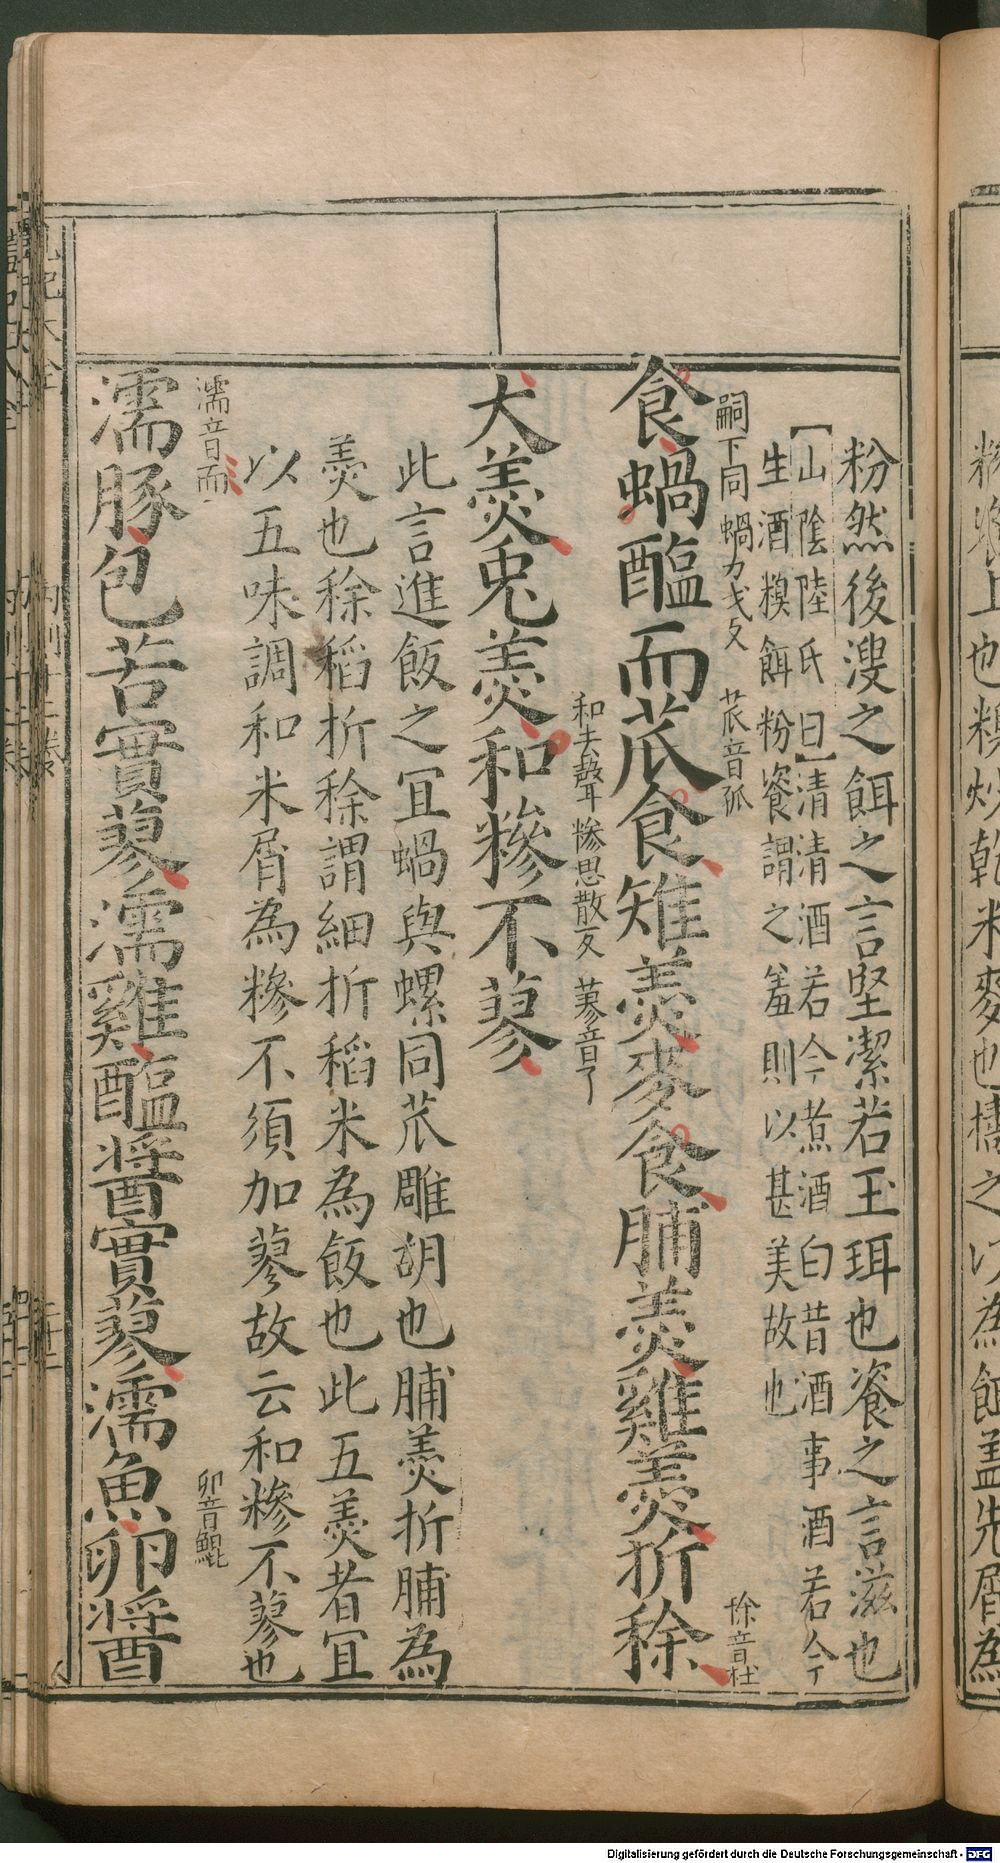 粉然後溲之餌之言堅潔若玉珥也餈之言滋也
山陰陸氏曰清清酒若今煮酒白昔酒事酒若今
生酒糗餌粉餈謂之羞則以甚美故也
嗣下同 蝸力戈反 苽音孤 稌音杜
食蝸醢而苽食雉羹麥食脯羹雞羹折稌
和去聲 糝思散反 蓼音了
犬羹兎羹和糝不蓼
此言進飯之宜蝸與螺同苽雕胡也脯羹折脯為
羹也稌稻折稌謂細折稻米為飯也此五羹者宜
以五味調和米屑為糝不須加蓼故云和糝不蓼也
濡音而 卵音鯤
濡豚包苦實蓼濡雞醢醬實蓼濡魚卵醬
Digitalisierung gefördert durch die Deutsche Forschungsgemeinschaft - DFG